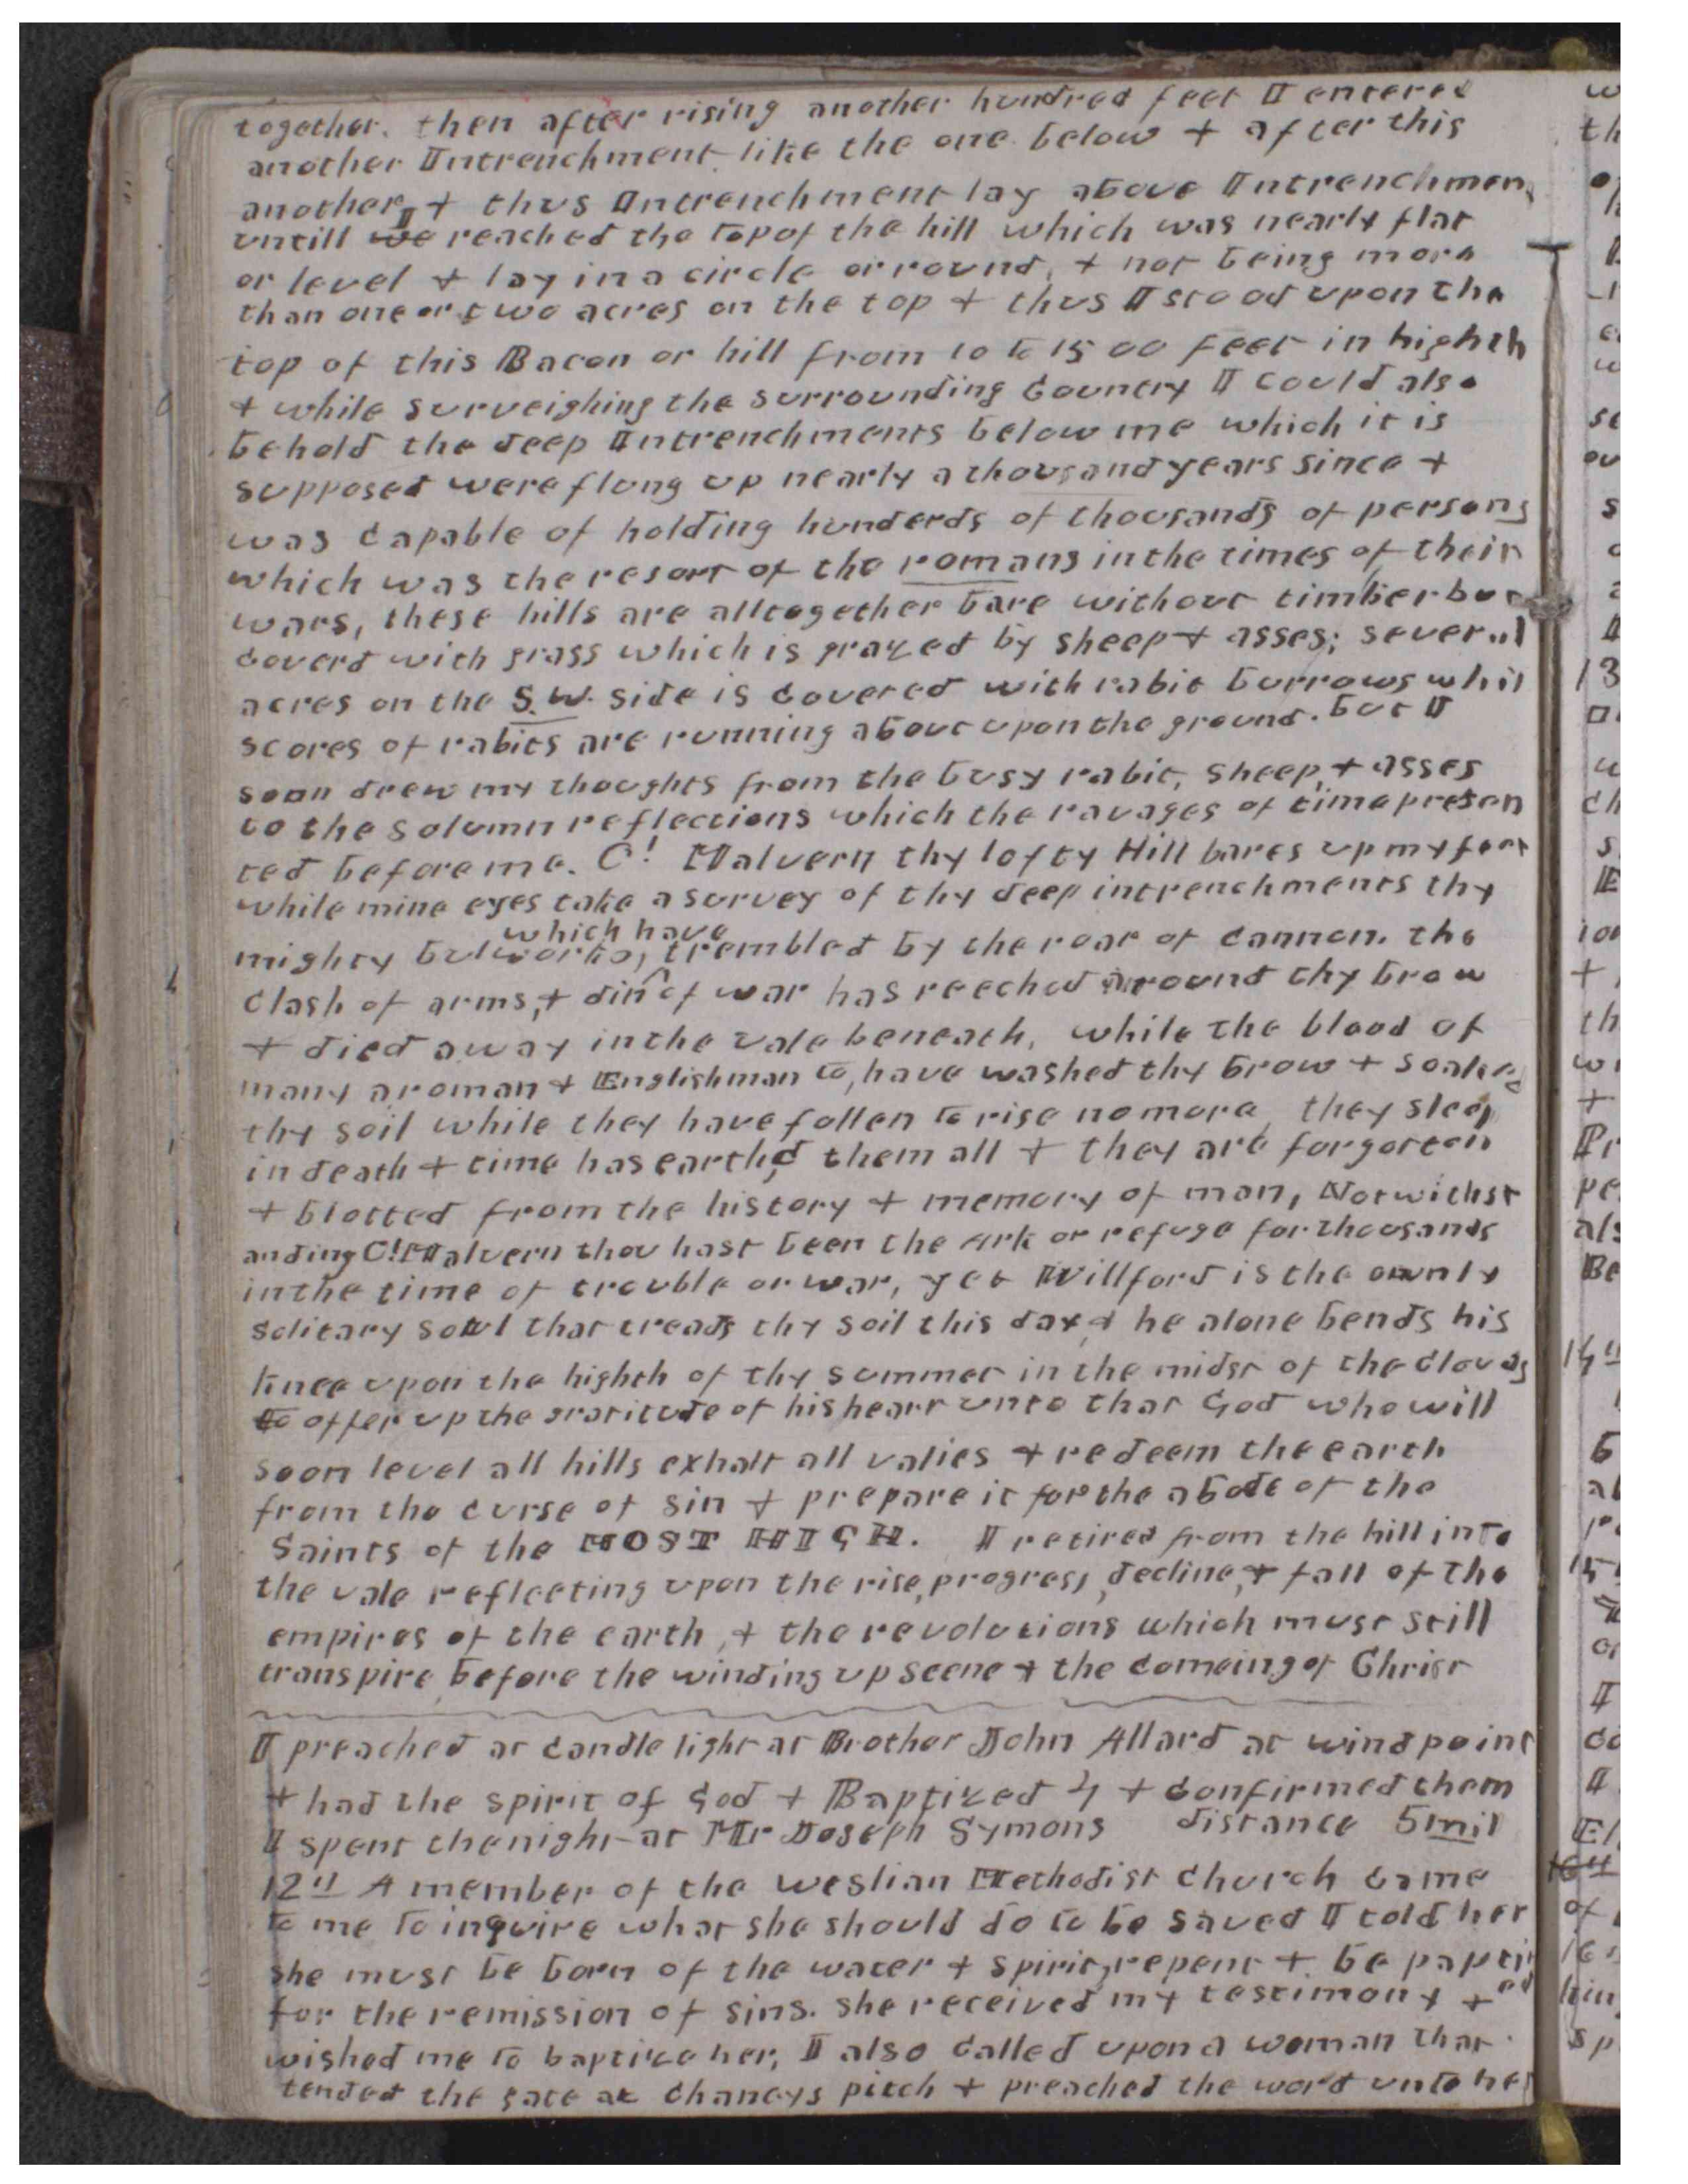 together. then after rising another hundred feet I entered
another Intrenchment like the one below + after this
another, + thus Intrenchment lay above Intrenchmen
untill we I reached the top of the hill which was nearly flat
or level + lay in a circle or round, + not being more
than one or two acres on the top + thus I stood upon the
top of this Bacon or hill from 10 to 15 00 feet in highth
+ while surveighing the surrounding Country I could also
behold the deep Intrenchments below me which it is
supposed were flung up nearly a thousand years since +
was capable of holding hunderds of thousands of persons
which was the resort of the romans in the times of their
wars, these hills are alltogether bare without timber but
coverd with grass which is grazed by sheep + asses; several
acres on the S.W. side is covered with rabit burrows whil
scores of rabits are running about upon the ground. but I
soon drew my thoughts from the busy rabit, sheep, + asses
to the solumn reflections which the ravages of time presen
ted before me. O! Malvern thy lofty Hill bares up my feet
while mine eyes take a survey of thy deep intrenchments thy
mighty bulworks, which have trembled by the roar of cannon. the
clash of arms, + din of war has reeched around thy brow
+ died away in the vale beneath, while the blood of
many a roman + Englishman to, have washed thy brow + soaked
thy soil while they have fallen to rise no more they sleep
in death + time has earthd them all + they are forgotten
+ blotted from the history + memory of man, Notwithst
anding O! Malvern thou hast been the Ark or refuge for thousands
in the time of trouble or war, yet Willford is the ownly
solitary soul that treads thy soil this day & he alone bends his
knee upon the highth of thy summet in the midst of the clouds
to offer up the gratitude of his heart unto that God who will
soon level all hills exhalt all valies + redeem the earth
from the curse of sin + prepare it for the abode of the
Saints of the MOST HIGH. I retired from the hill into
the vale reflecting upon the rise, progress, decline, + fall of the
empires of the earth, + the revolutions which must still
transpire before the winding up scene + the comeing of Christ
I preached at candle light at Brother John Allard at windpoint
+ had the spirit of God + Baptized 4 + confirmed them
I spent the night at Mr Joseph Symons distance 5 mil
12th A member of the weslian Methodist Church came
to me to inquire what she should do to be saved I told her
she must be born of the water + spirit, repent + be papti
ed
for the remission of sins. she received my testimony +
wished me to baptize her, I also called upon a woman that
tended the gate at Chaneys pitch + preached the word unto her